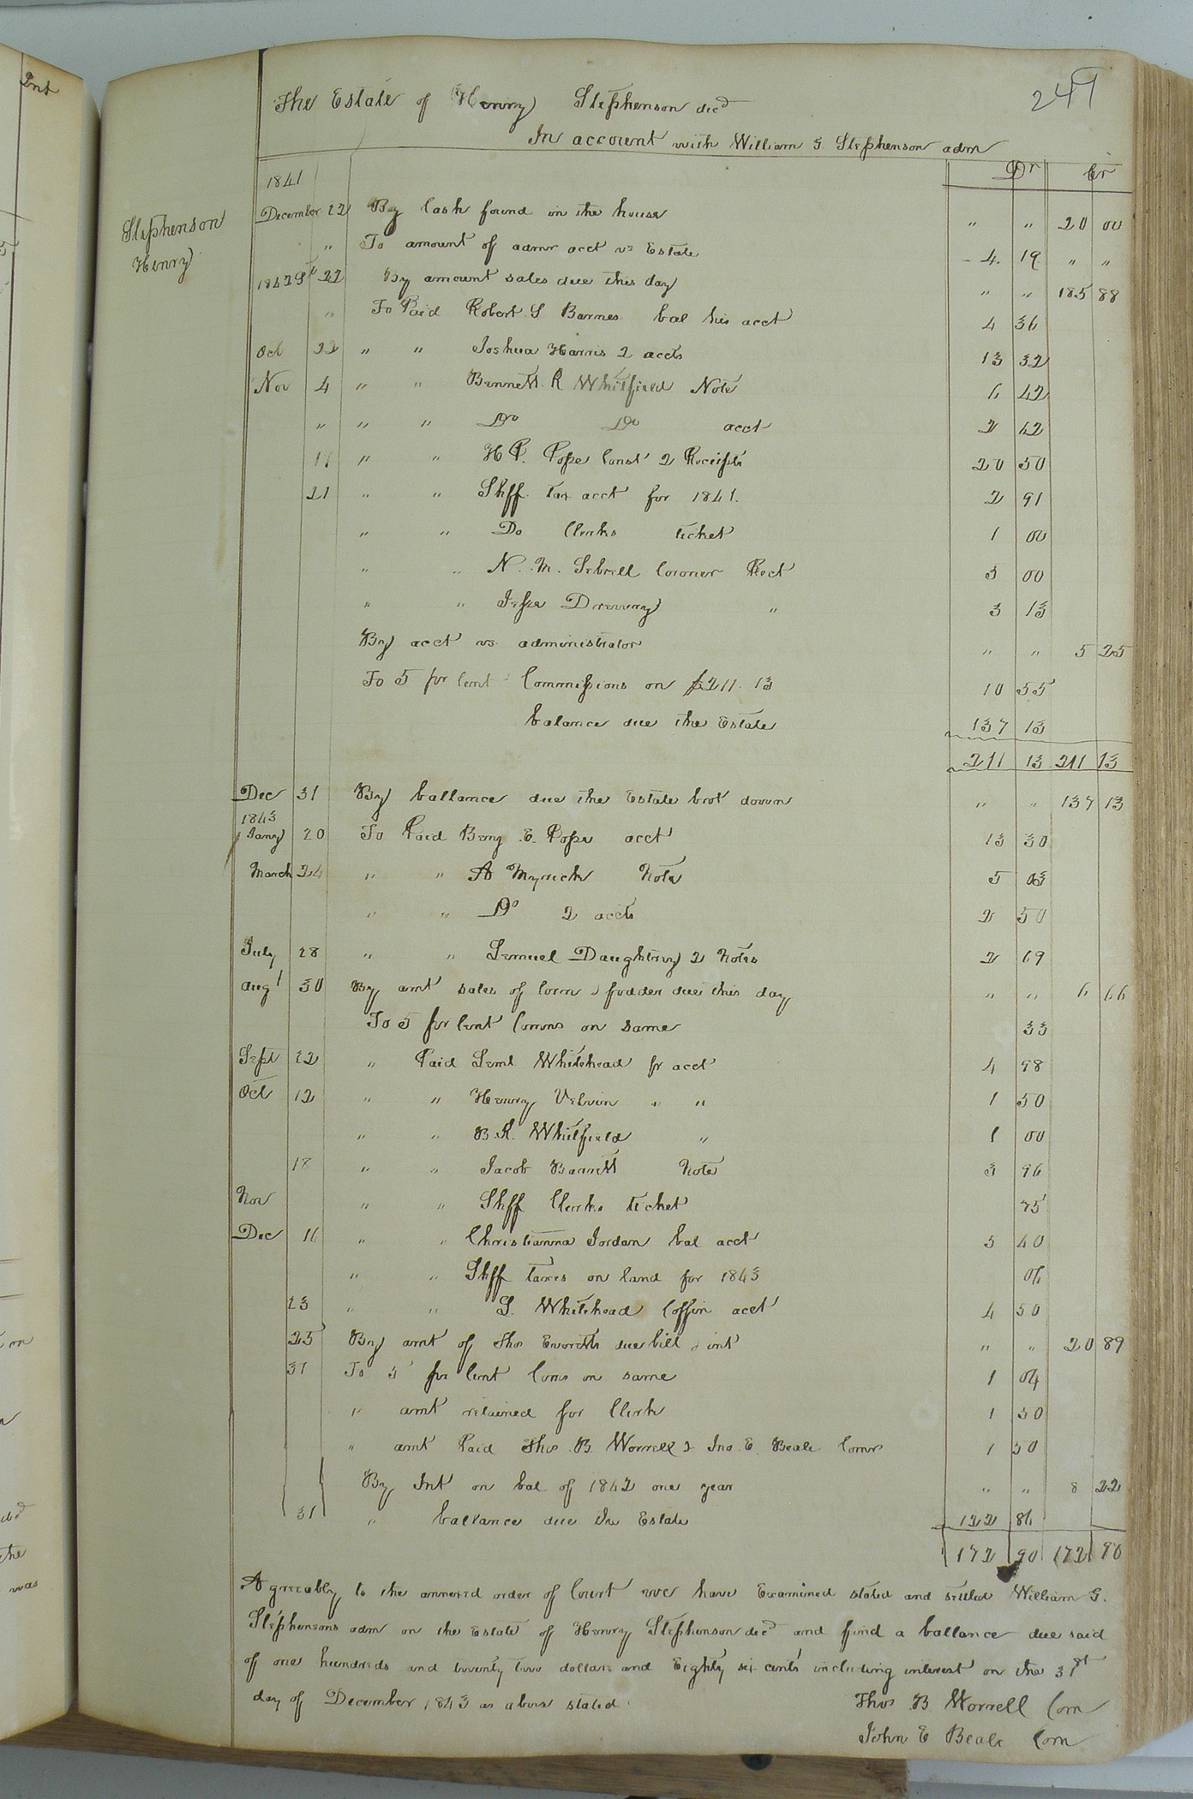 Int
249
The Estate of Henry Stephenson decd
In account with William G. Stephenson adm
Dr Cr
Stephenson
Henry
1841
December 22 By Cash found in the house " " 20 00
" To amount of admr acct vs Estate 4. 19 " "
1842 St 22 By amount sales due this day " " 185 88
" To Paid Robert S Barnes bal his acct 4 36
Oct 22 " " Joshua Harris 2 accts 13 32
Nov 4 " " Bennett R Whitfield Note 6 42
" " " Do Do acct 2 62
11 " " H P. Pope Const 2 Receipts 20 50
21 " " Shff tax acct for 1841. 2 91
" " Do Clerks ticket 1 00
" " N. M. Sebrell Coroner Rect 5 00
" " Jesse Drewry " 3 13
By acct vs administrator " " 5 25
To 5 per Cent Commissions on $211. 13 10 55
balance due the Estate 137 13
211 13 211 13
Dec 31 By ballance due the Estate brot down " " 137 13
1843
Jany 20 To Paid Benj E. Pope acct 13 30
March 24 " " A Myrick Note 5 03
" " Do 2 accts 2 50
July 28 " " Lemuel Daughtrey 2 Notes 2 69
Augt 30 By amt sales of Corn & fodder due this day " " 6 66
To 5 per Cent Comns on same 33
Sept 22 " Paid Leml Whitehead pr acct 4 98
Oct 12 " " Henry Velvin " " 1 50
" " B. R. Whitfield " 1 00
18 " " Jacob Barrett Note 3 96
Nov " " Shff Clerks ticket 75
Dec 16 " " Christianna Jordan bal acct 5 40
" " Shff taxes on land for 1843 06
23 " " L. Whitehead Coffin acct 4 50
25 By amt of Thos due bill & int " " 20 89
31 To 5 per Cent Coms on same 1 04
" amt retained for Clerk 1 50
" amt Paid Thos B. Worrell & Jno E. Beale Comrs 1 50
By Int on bal of 1842 one year " " 8 22
31 " ballance due the Estate 122 86
172 90 172 90
Agreeably to the annexed order of Court we have Examined stated and settled William G.
Stephensons adm on the Estate of Henry Stephenson decd and find a ballance due said
of one hundreds and twenty two dollars and Eighty six cents including interest on the 31st
day of December 1843 as above stated
Thos B Worrell Com
John E Beale Com